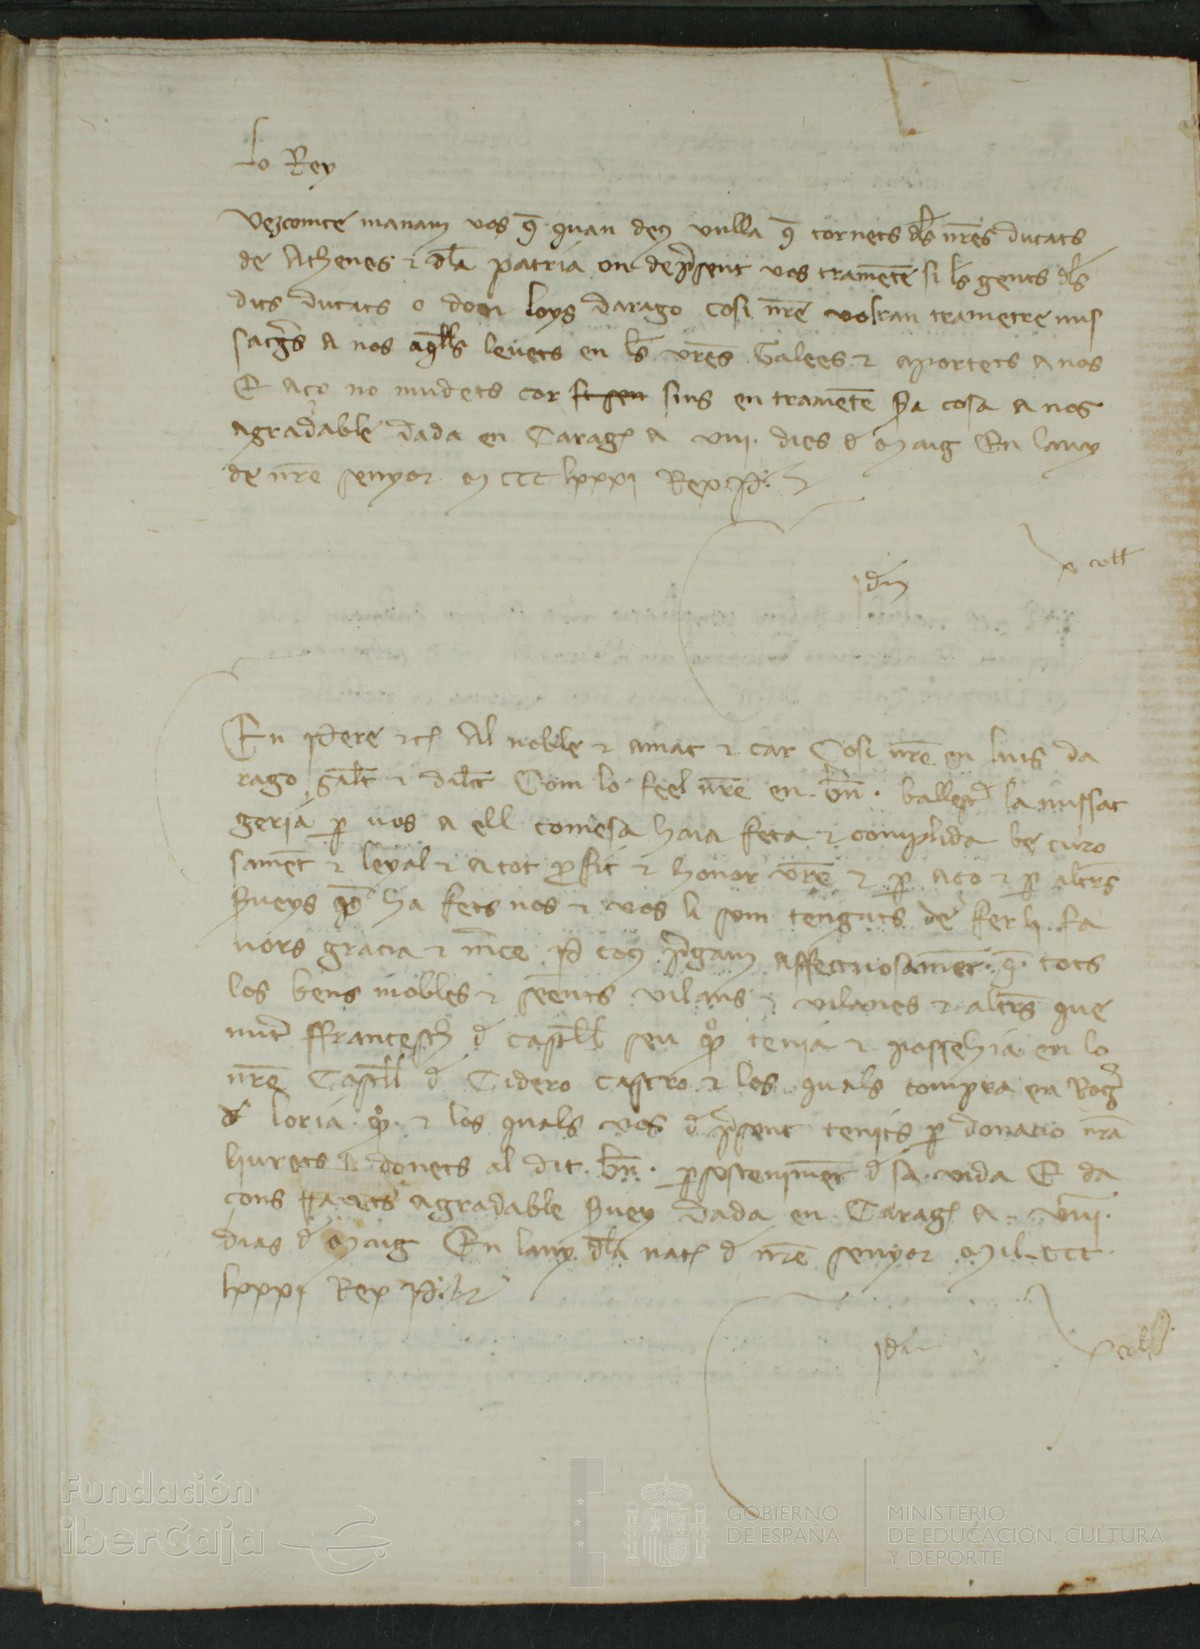 Lo Rey
Vezcomte manam vos q̄ quan deu vulla q̄ tornets dls nr̄es ducats
de Athenes ⁊ dla patria on de p̄sent vos trametē si ls gents dls
dits ducats o don loys darago cosi nr̄e volran trametre mis
satgs a nos aqlls levets en ls vr̄es Galees ⁊ aportets a nos
E aço no mudets cor sins en trametē s̄ia cosa a nos
agradable dada en Carag̃ a viii dies d maig En lany
de nr̄e senyor m ccc lxxxi Rex P.
Idm
En Pere etc̃ Al noble ⁊ amat ⁊ car Cosi nr̄e en luis da
rago salt ⁊ dilc̃t Com lo feel nr̄e en bn̄. ballest la missat
geria p vos a ell comesa haia feta ⁊ complida be curo
samēt ⁊ leyal ⁊ a tot p̄fit ⁊ honor vr̄e ⁊ p aço ⁊ p altr̄s
s̄ueys q̄ ha fets nos ⁊ vos li som tenguts de fer li fa
vors gracia ⁊ m̄ce P̄ ço p̄gam affectuosamēt q̄ tots
los bens mobles ⁊ seēnts vilans ⁊ vilanes ⁊ altr̄s que
ffrancesch d castll seu qo tenia ⁊ possehia en lo
nr̄e Castll d Cidero castro ⁊ los quals compra en Rog̃
d loria qo ⁊ los quals vos d p̄sent tenits p donatio nr̄a
liurets ⁊ donets al dit bn̄. p sosteniment d sa vida E da
çons farets agradable s̄uey dada en Carag̃ a viii
dias d maig En lany dla nat̃ d nr̄e senyor mil ccc
lxxxi Rex P.
Idm
Fundación
iberCaja
GOBIERNO
DE ESPAÑA
MINISTERIO
DE EDUCACIÓN, CULTURA
Y DEPORTE